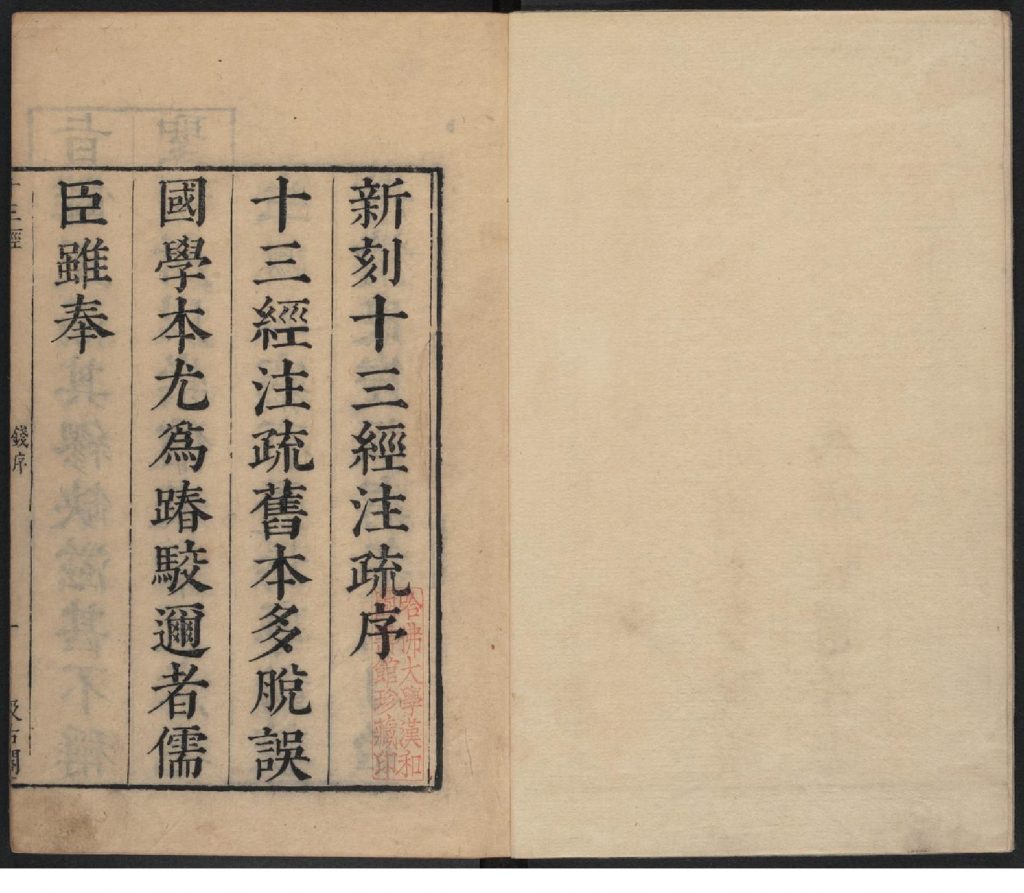 新刻十三經注疏序
十三經注疏舊本多脫誤
國學本尤爲踳駮邇者儒
臣雖奉
十三經
錢序
一
汲古閣
哈佛大學漢和
圖書館珍藏印